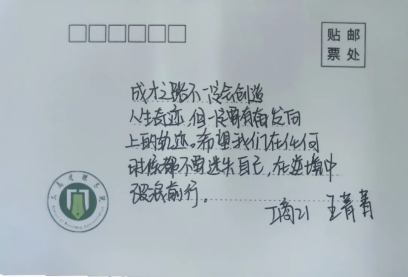 贴邮
票处
成才之路不一定会创造
人生奇迹，但一定要有奋发向
上的轨迹。希望我们在任何
时候都不要迷失自己，在逆境中
砥砺前行。
王菁菁